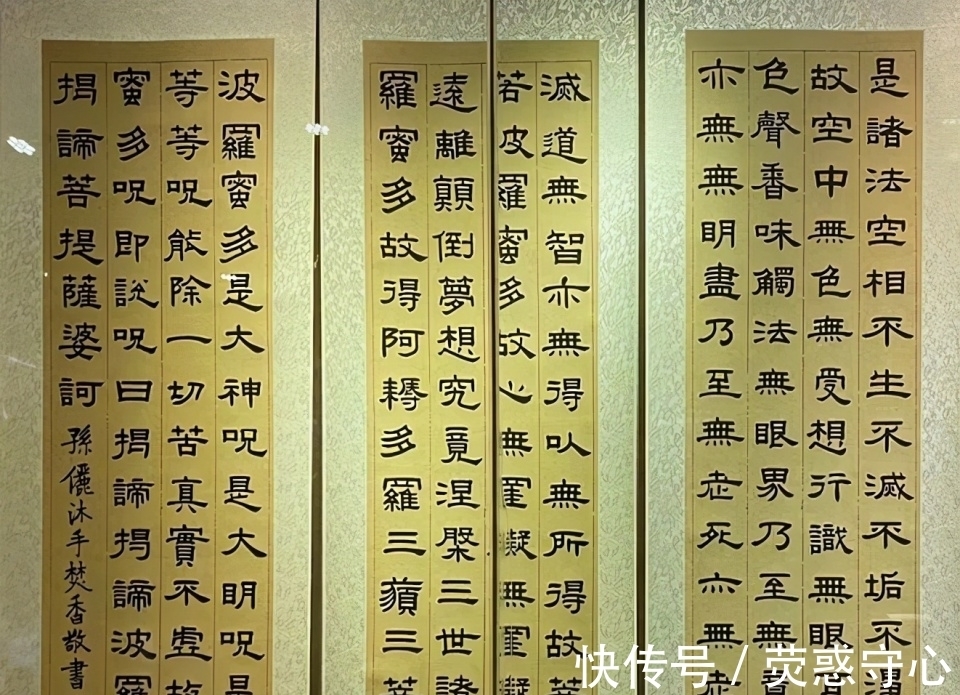 是諸法空相不生不滅不垢不
故空中無色無受想行識無眼
色聲香味觸法無眼界乃至無意
亦無無明盡乃至無老死亦無
滅道無智亦無得以無所得故
若波羅蜜多故心無罣礙無罣
遠離顛倒夢想究竟涅槃三世諸
羅蜜多故得阿耨多羅三藐三菩
波羅蜜多是大神呪是大明呪是
等等呪能除一切苦真實不虛故
蜜多呪即說呪曰揭諦揭諦波羅
揭諦菩提薩婆訶 孫儷沐手焚香敬書
快传号 / 荧惑守心